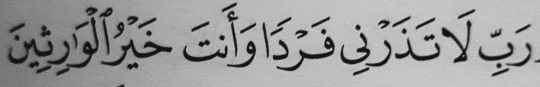 رَبِّ لَا تَذَرْنِي فَرْدًا وَأَنتَ خَيْرُ ٱلْوَٰرِثِينَ